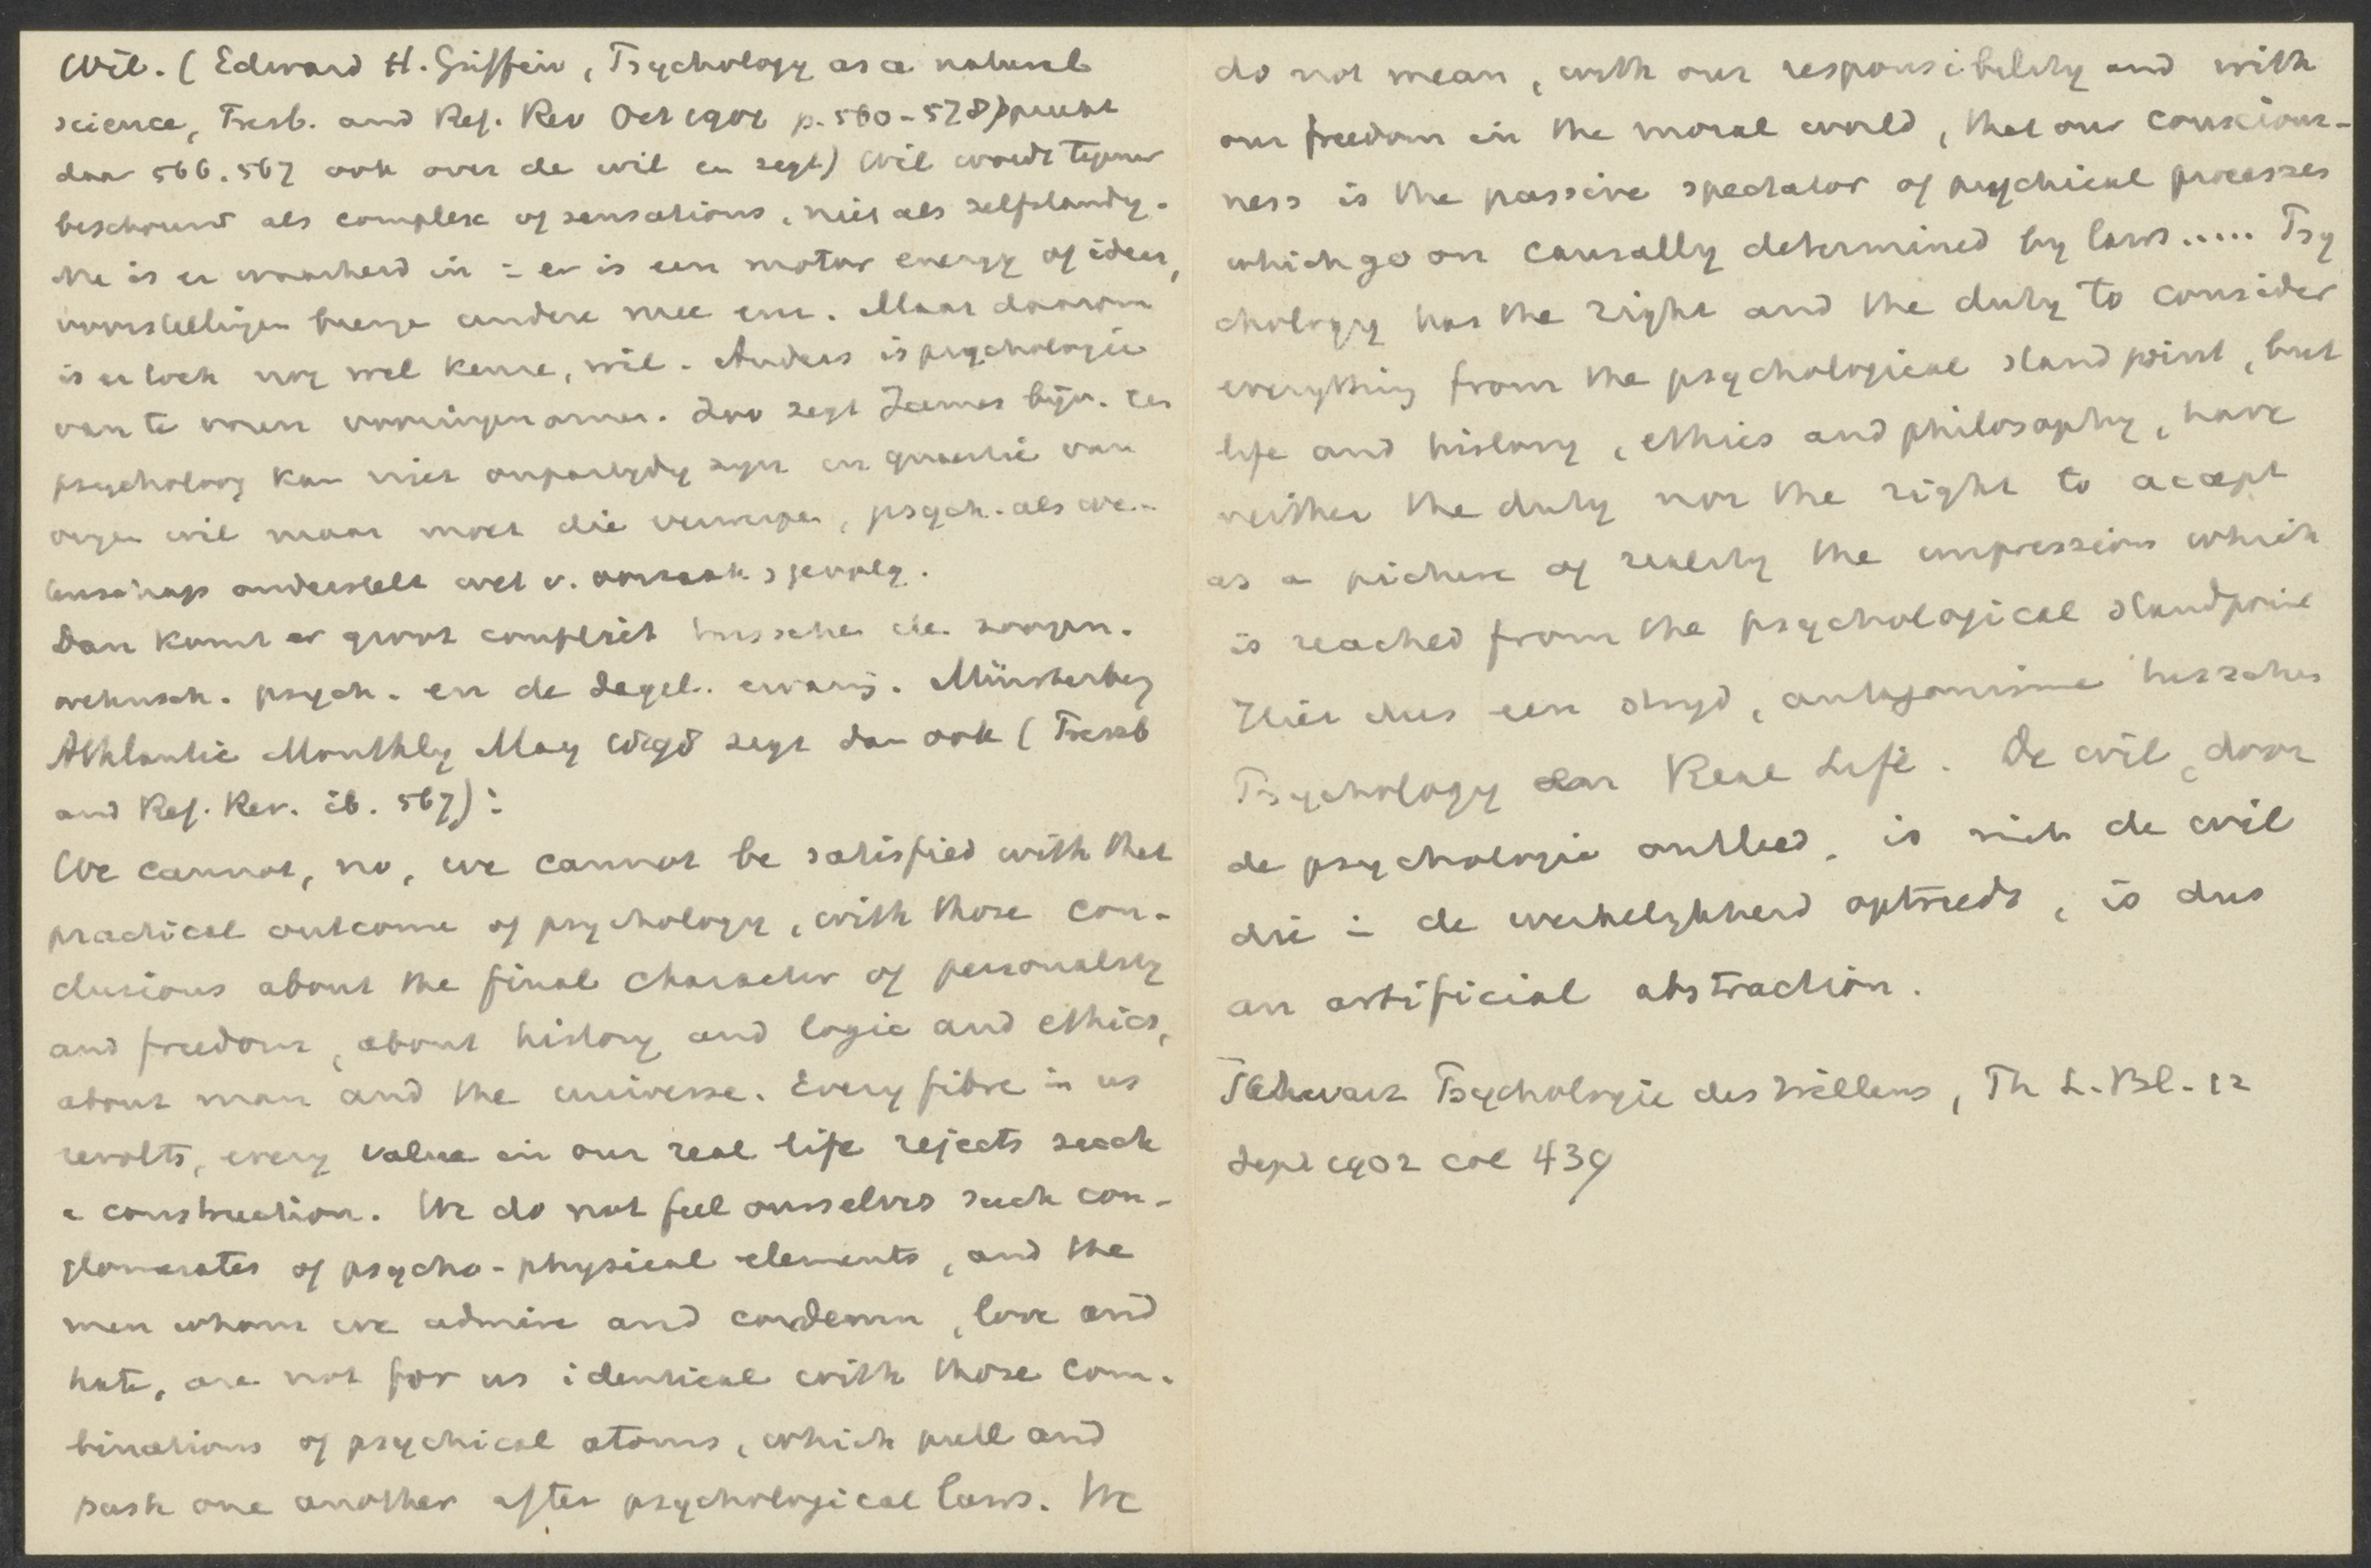 Wil. (Edward H. Griffin, Psychology as a natural
science, Presb. and Ref. Rev Oct 1901 p. 560-578) spreekt
daar 566.567 ook over de wil en zegt) Wil wordt tegenw
beschouwd als complex of sensations, niet als zelfstandig.
Nu is er waarheid in : er is een motor energy of ideas,
voorstellingen brengen andere mee enz. Maar daarom
is er toch nog wel keuze, wil. Anders is psychologie
van te voren vooringenomen. Zoo zegt James bijv. een
psycholoog kan niet onpartydig zyn in quaestie van
wil maar moet die verwerpen, psych. als we-
tenschap onderstelt wet v. oorzaak & gevolg.
Dan komt er groot conflict tusschen de zoogen.
wetensch. psych. en de dagel. ervaring. Münsterberg
Athlantic Monthly May 1898 zegt dan ook (Presb
and Ref. Rev. ib. 567):
We cannot, no, we cannot be satisfied with that
practical outcome of psychology, with those con-
clusions about the final character of personality
and freedom, about history and logic and ethics,
about man and the universe. Every fibre in us
revolts, every value in our real life rejects such
a construction. We do not feel ourselves such con-
glomerates of psycho-physical elements, and the
men whom we admire and condemn, love and
hate, are not for us identical with those com-
binations of psychical atoms, which pull and
push one another after psychological laws. We
do not mean, with our responsibility and with
our freedom in the moral world, that our conscious-
ness is the passive spectator of psychical processes
which go on causally determined by laws..... Psy
chology has the right and the duty to consider
everything from the psychological standpoint, but
life and history, ethics and philosophy, have
neither the duty nor the right to accept
as a picture of reality the impression which
is reached from the psychological standpoint
Hier dus een stryd, antagonisme tusschen
Psychology and Real Life. De wil, door
de psychologie ontleed, is niet de wil
die in de werkelykheid optreedt, is dus
an artificial abstraction.
Schwarz Psychologie des Willens, Th L. Bl. 12
Sept 1902 col 439